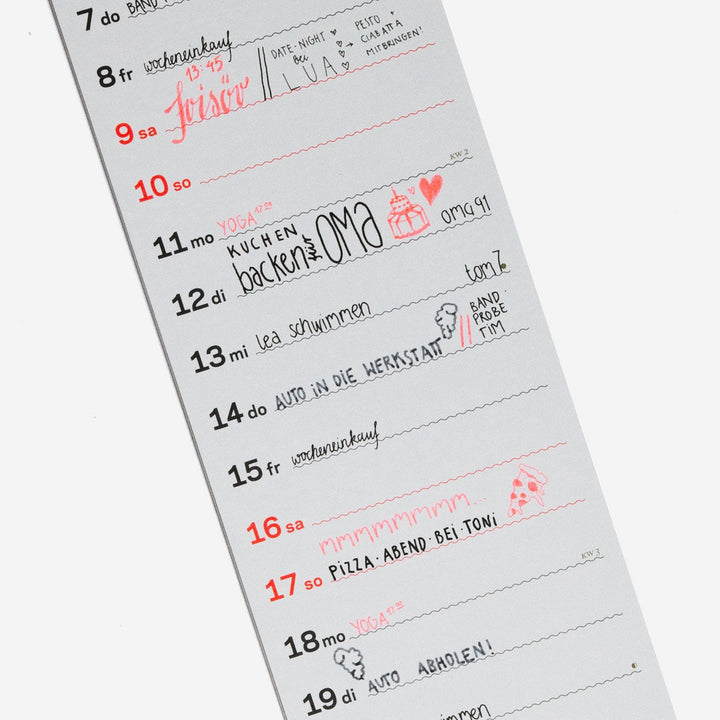 7 do BAND
8 fr wocheneinkauf // DATE-NIGHT bei LUA → PESTO + CIABATTA MITBRINGEN!
13:45
9 sa
10 so
KW 2
11 mo YOGA
KUCHEN
12 di backen für OMA OMA 91
13 mi lea schwimmen tom 7
14 do AUTO IN DIE WERKSTATT // BAND-PROBE TIM
15 fr wocheneinkauf
16 sa
mmmmmmmm...
17 so PIZZA·ABEND·BEI·TONI
KW 3
18 mo YOGA
19 di AUTO ABHOLEN!
schwimmen